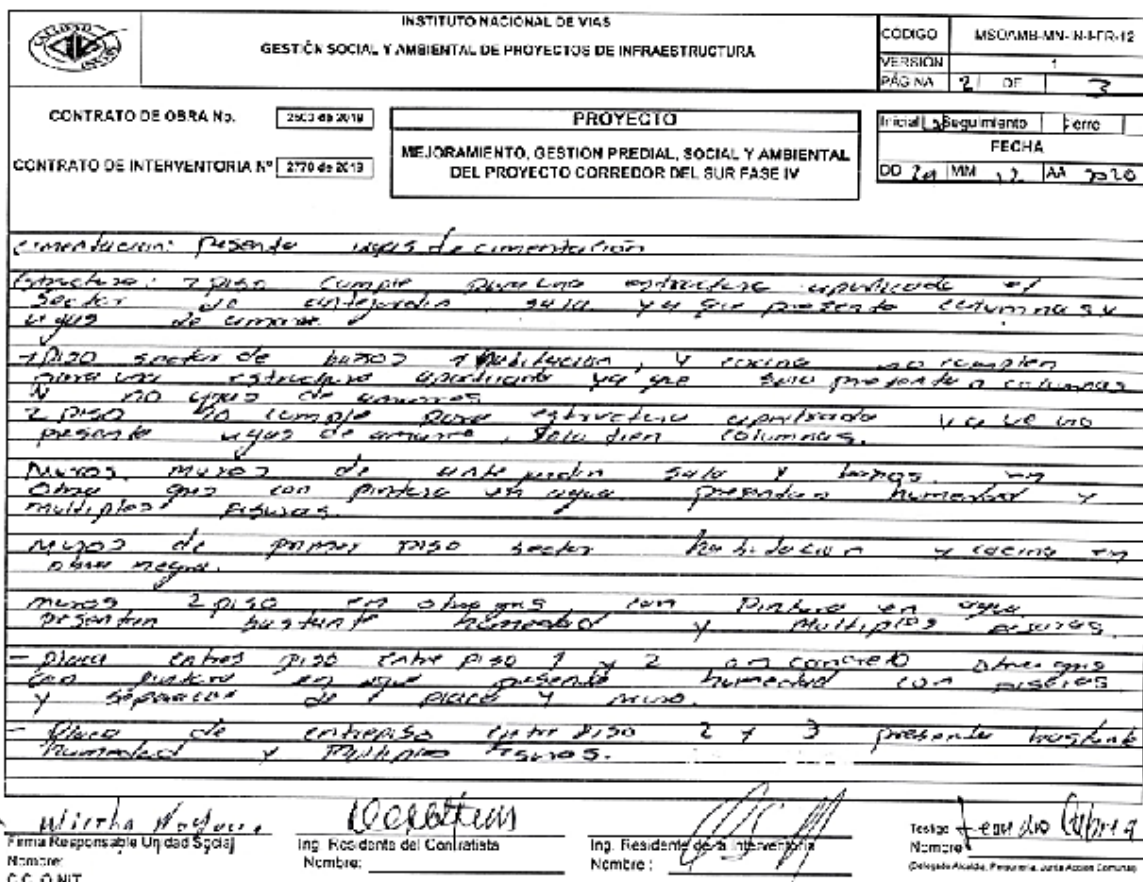 INSTITUTO NACIONAL DE VIAS
GESTIÓN SOCIAL Y AMBIENTAL DE PROYECTOS DE INFRAESTRUCTURA
CODIGO
VERSION 1
PÁGINA 2 DE 3
CONTRATO DE OBRA No. 2503 de 2019
CONTRATO DE INTERVENTORIA Nº 2770 de 2019
PROYECTO
MEJORAMIENTO, GESTION PREDIAL, SOCIAL Y AMBIENTAL
DEL PROYECTO CORREDOR DEL SUR FASE IV
Inicial Seguimiento Cierre
FECHA
DD MM 12 AA 2020
cimentacion: presenta vigas de cimentación
Estructura: piso cumple para una estructura aporticada el
sector de antejardin sala ya que presenta columnas y
vigas de amarre
1 piso sector de baños habitacion, y cocina no cumplen
para una estructura aporticada ya que solo presenta columnas
no vigas de amarres
2 piso no cumple para estructura aporticada no
presenta vigas de amarre, columnas.
Muros muros de antejardin sala y baños en
obra gris con pintura en agua presentan humedad y
multiples fisuras.
muros de primer piso sector habitacion y cocina en
obra negra.
muros 2 piso en obra gris con pintura en agua
presentan bastante humedad y multiples fisuras.
- placa entre piso 1 y 2 en concreto obra gris
con pintura en agua presenta humedad con fisuras
y separacion de placa y muro.
- Placa de entrepiso entre piso 2 y 3 presenta bastante
humedad y multiples fisuras.
Firma Responsable Unidad Social
Nombre:
C.C. O NIT
Ing. Residente del Contratista
Nombre:
Ing. Residente de la Interventoria
Nombre:
Testigo
Nombre
(Delegado Alcaldía, Personería, Junta Accion Comunal)